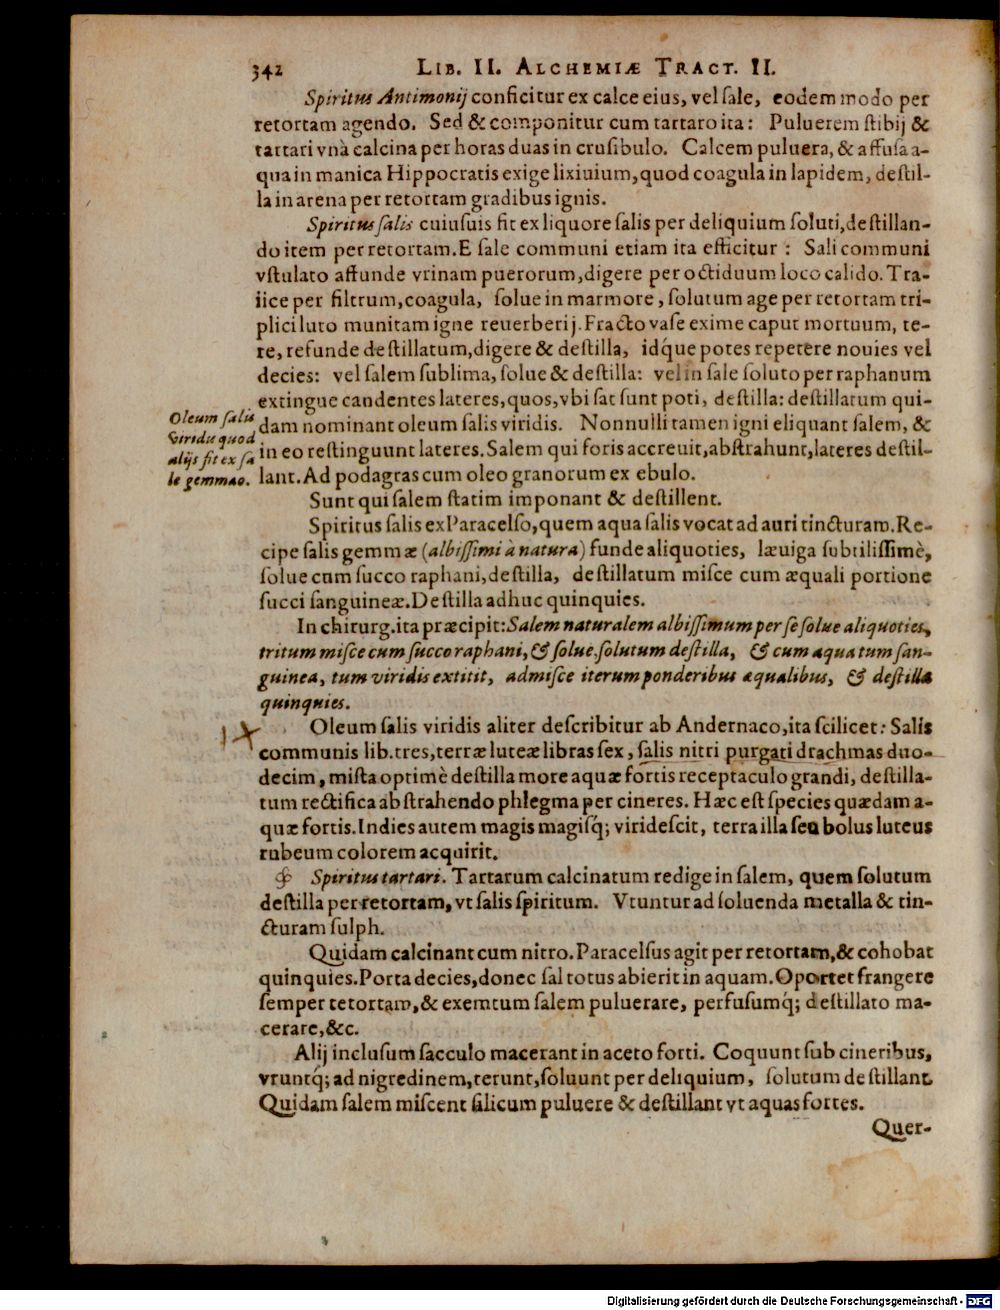 342 LIB. II. ALCHEMIÆ TRACT. II.
Spiritus Antimonij conficitur ex calce eius, vel ſale, eodem modo per
retortam agendo. Sed & componitur cum tartaro ita: Puluerem ſtibij &
tartari vnà calcina per horas duas in cruſibulo. Calcem puluera, & affuſa a-
qua in manica Hippocratis exige lixiuium, quod coagula in lapidem, deſtil-
la in arena per retortam gradibus ignis.
Spiritus ſalis cuiuſuis fit ex liquore ſalis per deliquium ſoluti, deſtillan-
do item per retortam. E ſale communi etiam ita efficitur: Sali communi
vſtulato affunde vrinam puerorum, digere per octiduum loco calido. Tra-
iice per filtrum, coagula, ſolue in marmore, ſolutum age per retortam tri-
plici luto munitam igne reuerberij. Fracto vaſe exime caput mortuum, te-
re, refunde deſtillatum, digere & deſtilla, idq́ue potes repetere nouies vel
decies: vel ſalem ſublima, ſolue & deſtilla: vel in ſale ſoluto per raphanum
extingue candentes lateres, quos, vbi ſat ſunt poti, deſtilla: deſtillatum qui-
dam nominant oleum ſalis viridis. Nonnulli tamen igni eliquant ſalem, &
in eo reſtinguunt lateres. Salem qui foris accreuit, abſtrahunt, lateres deſtil-
lant. Ad podagras cum oleo granorum ex ebulo.
Oleum ſalis
viridis quod
alijs fit ex ſa
le gemmæo.
Sunt qui ſalem ſtatim imponant & deſtillent.
Spiritus ſalis ex Paracelſo, quem aqua ſalis vocat ad auri tincturam. Re-
cipe ſalis gemmæ (albiſſimi à natura) funde aliquoties, læuiga ſubtiliſſimè,
ſolue cum ſucco raphani, deſtilla, deſtillatum miſce cum æquali portione
ſucci ſanguineæ. Deſtilla adhuc quinquies.
In chirurg. ita præcipit: Salem naturalem albiſſimum per ſe ſolue aliquoties,
tritum miſce cum ſucco raphani, & ſolue. ſolutum deſtilla, & cum aqua tum ſan-
guinea, tum viridis extitit, admiſce iterum ponderibus æqualibus, & deſtilla
quinquies.
Oleum ſalis viridis aliter deſcribitur ab Andernaco, ita ſcilicet: Salis
communis lib. tres, terræ luteæ libras ſex, ſalis nitri purgati drachmas duo-
decim, miſta optimè deſtilla more aquæ fortis receptaculo grandi, deſtilla-
tum rectifica abſtrahendo phlegma per cineres. Hæc eſt ſpecies quædam a-
quæ fortis. Indies autem magis magiſq́; virideſcit, terra illa ſeu bolus luteus
rubeum colorem acquirit.
Spiritus tartari. Tartarum calcinatum redige in ſalem, quem ſolutum
deſtilla per retortam, vt ſalis ſpiritum. Vtuntur ad ſoluenda metalla & tin-
cturam ſulph.
Quidam calcinant cum nitro. Paracelſus agit per retortam, & cohobat
quinquies. Porta decies, donec ſal totus abierit in aquam. Oportet frangere
ſemper retortam, & exemtum ſalem puluerare, perfuſumq́; deſtillato ma-
cerare, &c.
Alij incluſum ſacculo macerant in aceto forti. Coquunt ſub cineribus,
vruntq́; ad nigredinem, terunt, ſoluunt per deliquium, ſolutum deſtillant.
Quidam ſalem miſcent ſilicum puluere & deſtillant vt aquas fortes.
Quer-
Digitalisierung gefördert durch die Deutsche Forschungsgemeinschaft - DFG